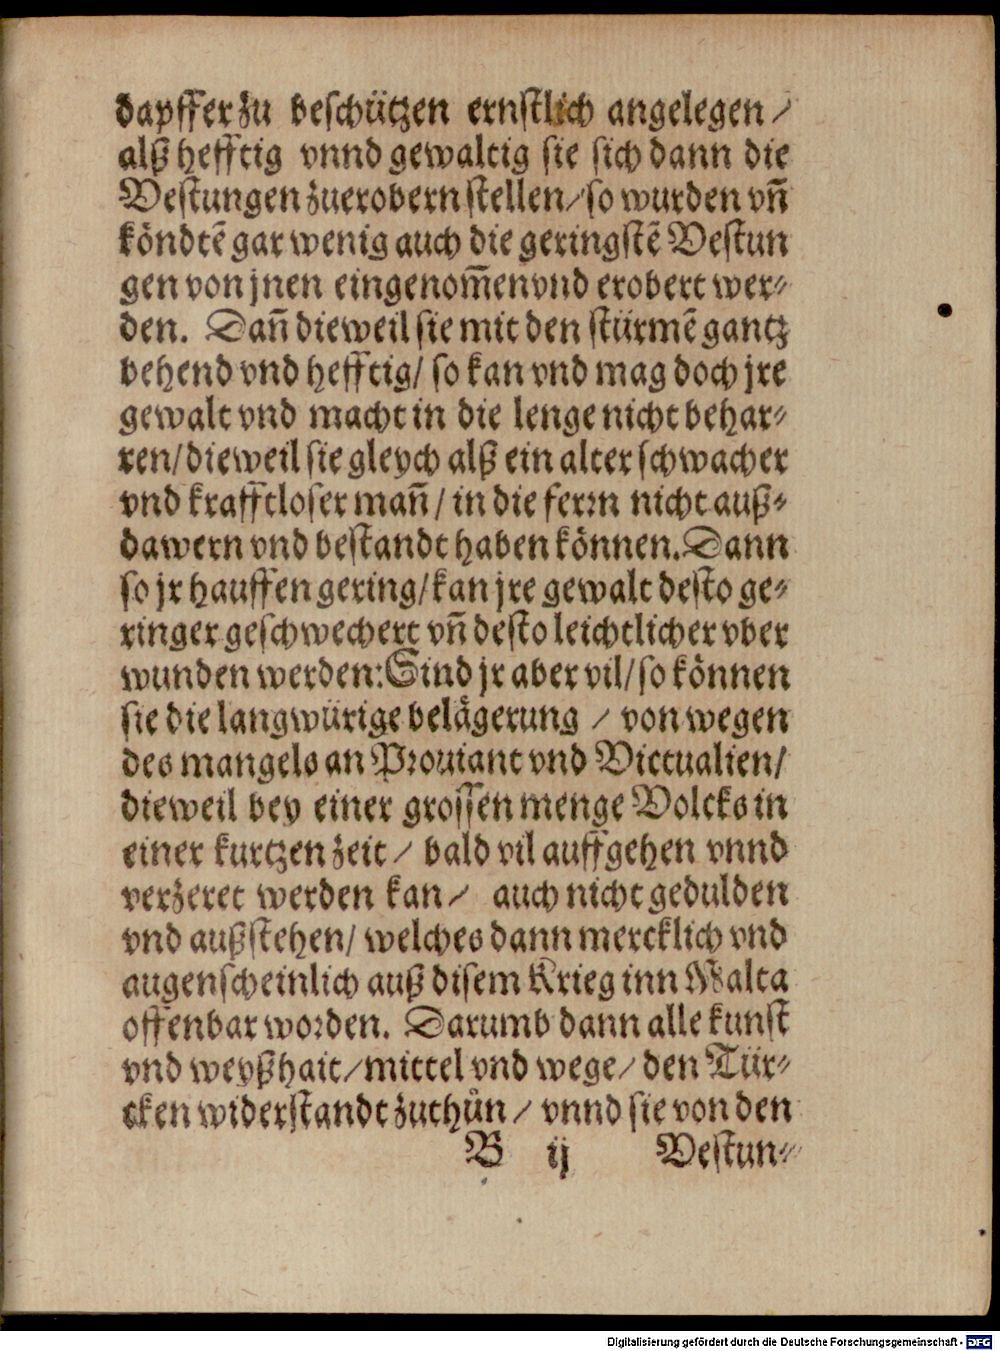 dapffer zu beschützen ernstlich angelegen /
alß hefftig vnnd gewaltig sie sich dann die
Vestungen zuerobern stellen / so wurden vn̄
köndtē gar wenig auch die geringstē Vestun
gen von jnen eingenom̄en vnd erobert wer⸗
den. Dan̄ dieweil sie mit den stürmē gantz
behend vnd hefftig / so kan vnd mag doch jre
gewalt vnd macht in die lenge nicht behar⸗
ren / dieweil sie gleych alß ein alter schwacher
vnd krafftloser man̄ / in die ferrn nicht auß⸗
dawern vnd bestandt haben können. Dann
so jr hauffen gering / kan jre gewalt desto ge⸗
ringer geschwechert vn̄ desto leichtlicher vber
wunden werden: Sind jr aber vil / so können
sie die langwürige belägerung / von wegen
des mangels an Prouiant vnd Victualien /
dieweil bey einer grossen menge Volcks in
einer kurtzen zeit / bald vil auffgehen vnnd
verzeret werden kan / auch nicht gedulden
vnd außstehen / welches dann mercklich vnd
augenscheinlich auß disem Krieg inn Malta
offenbar worden. Darumb dann alle kunst
vnd weyßhait / mittel vnd wege / den Tür⸗
cken widerstandt zuthůn / vnnd sie von den
B ij Vestun⸗
Digitalisierung gefördert durch die Deutsche Forschungsgemeinschaft - DFG